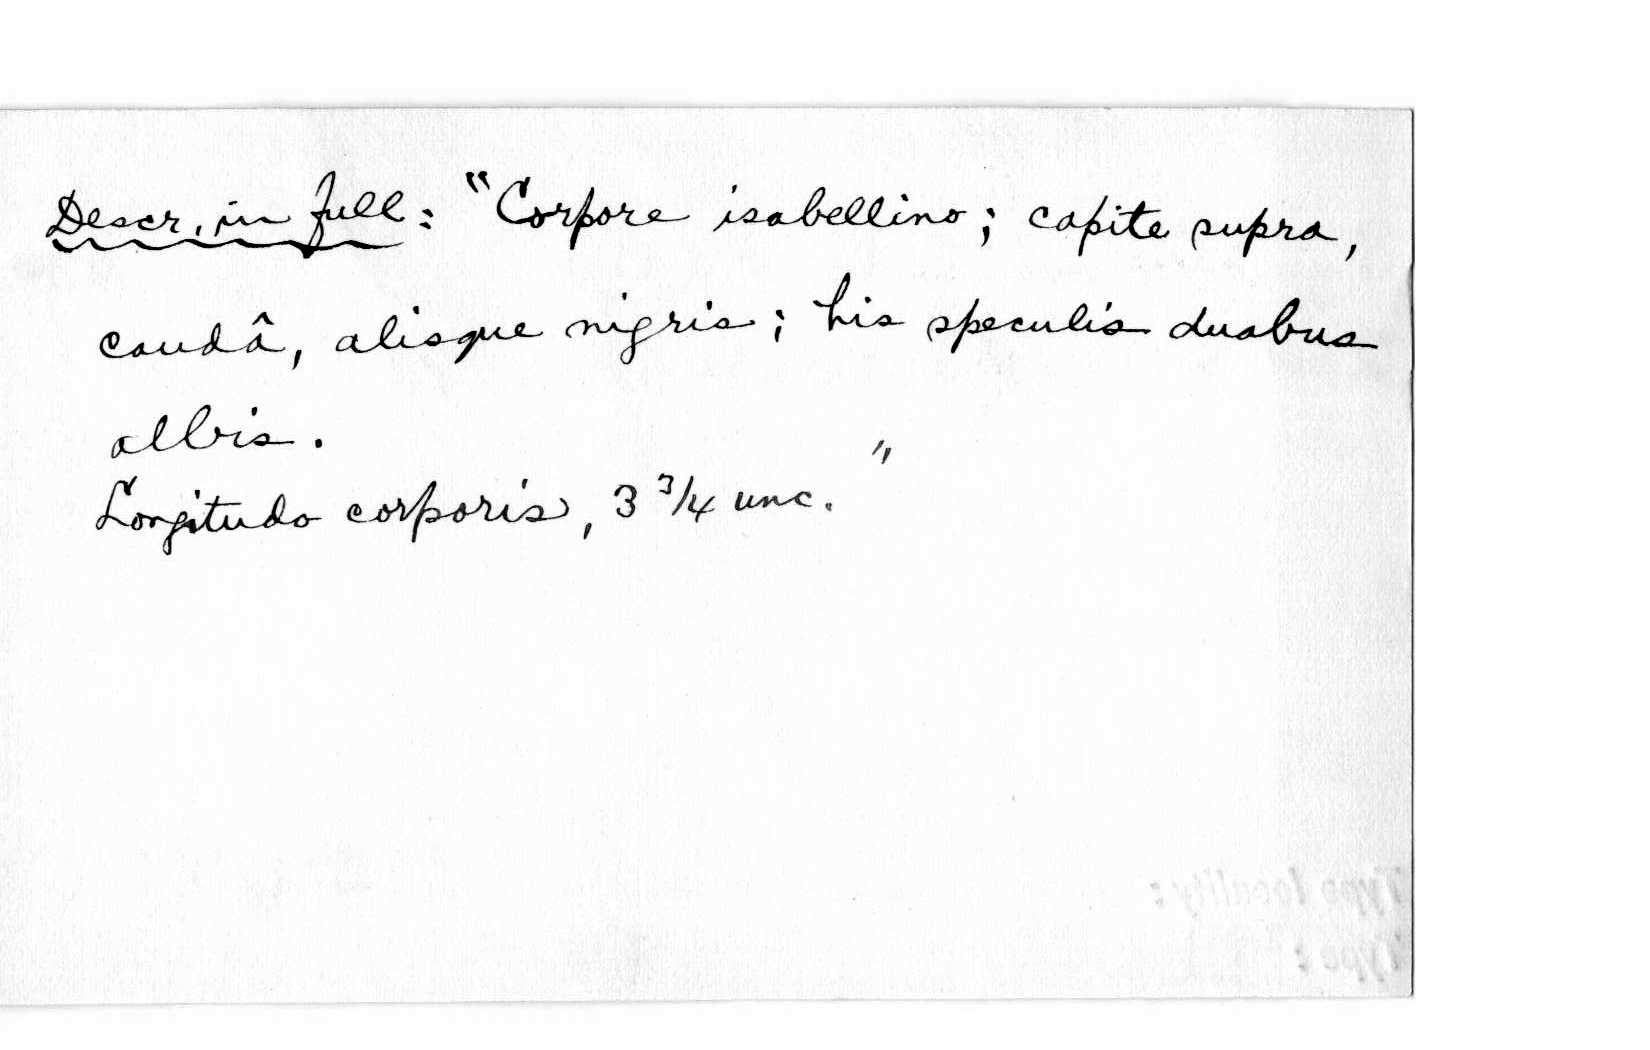 Descr. in full: "Corpore isabellino; capite supra,
caudâ, alisque nigris; his speculis duabus
albis.
Longitudo corporis, 3 3/4 unc."
Type locality:
Type: